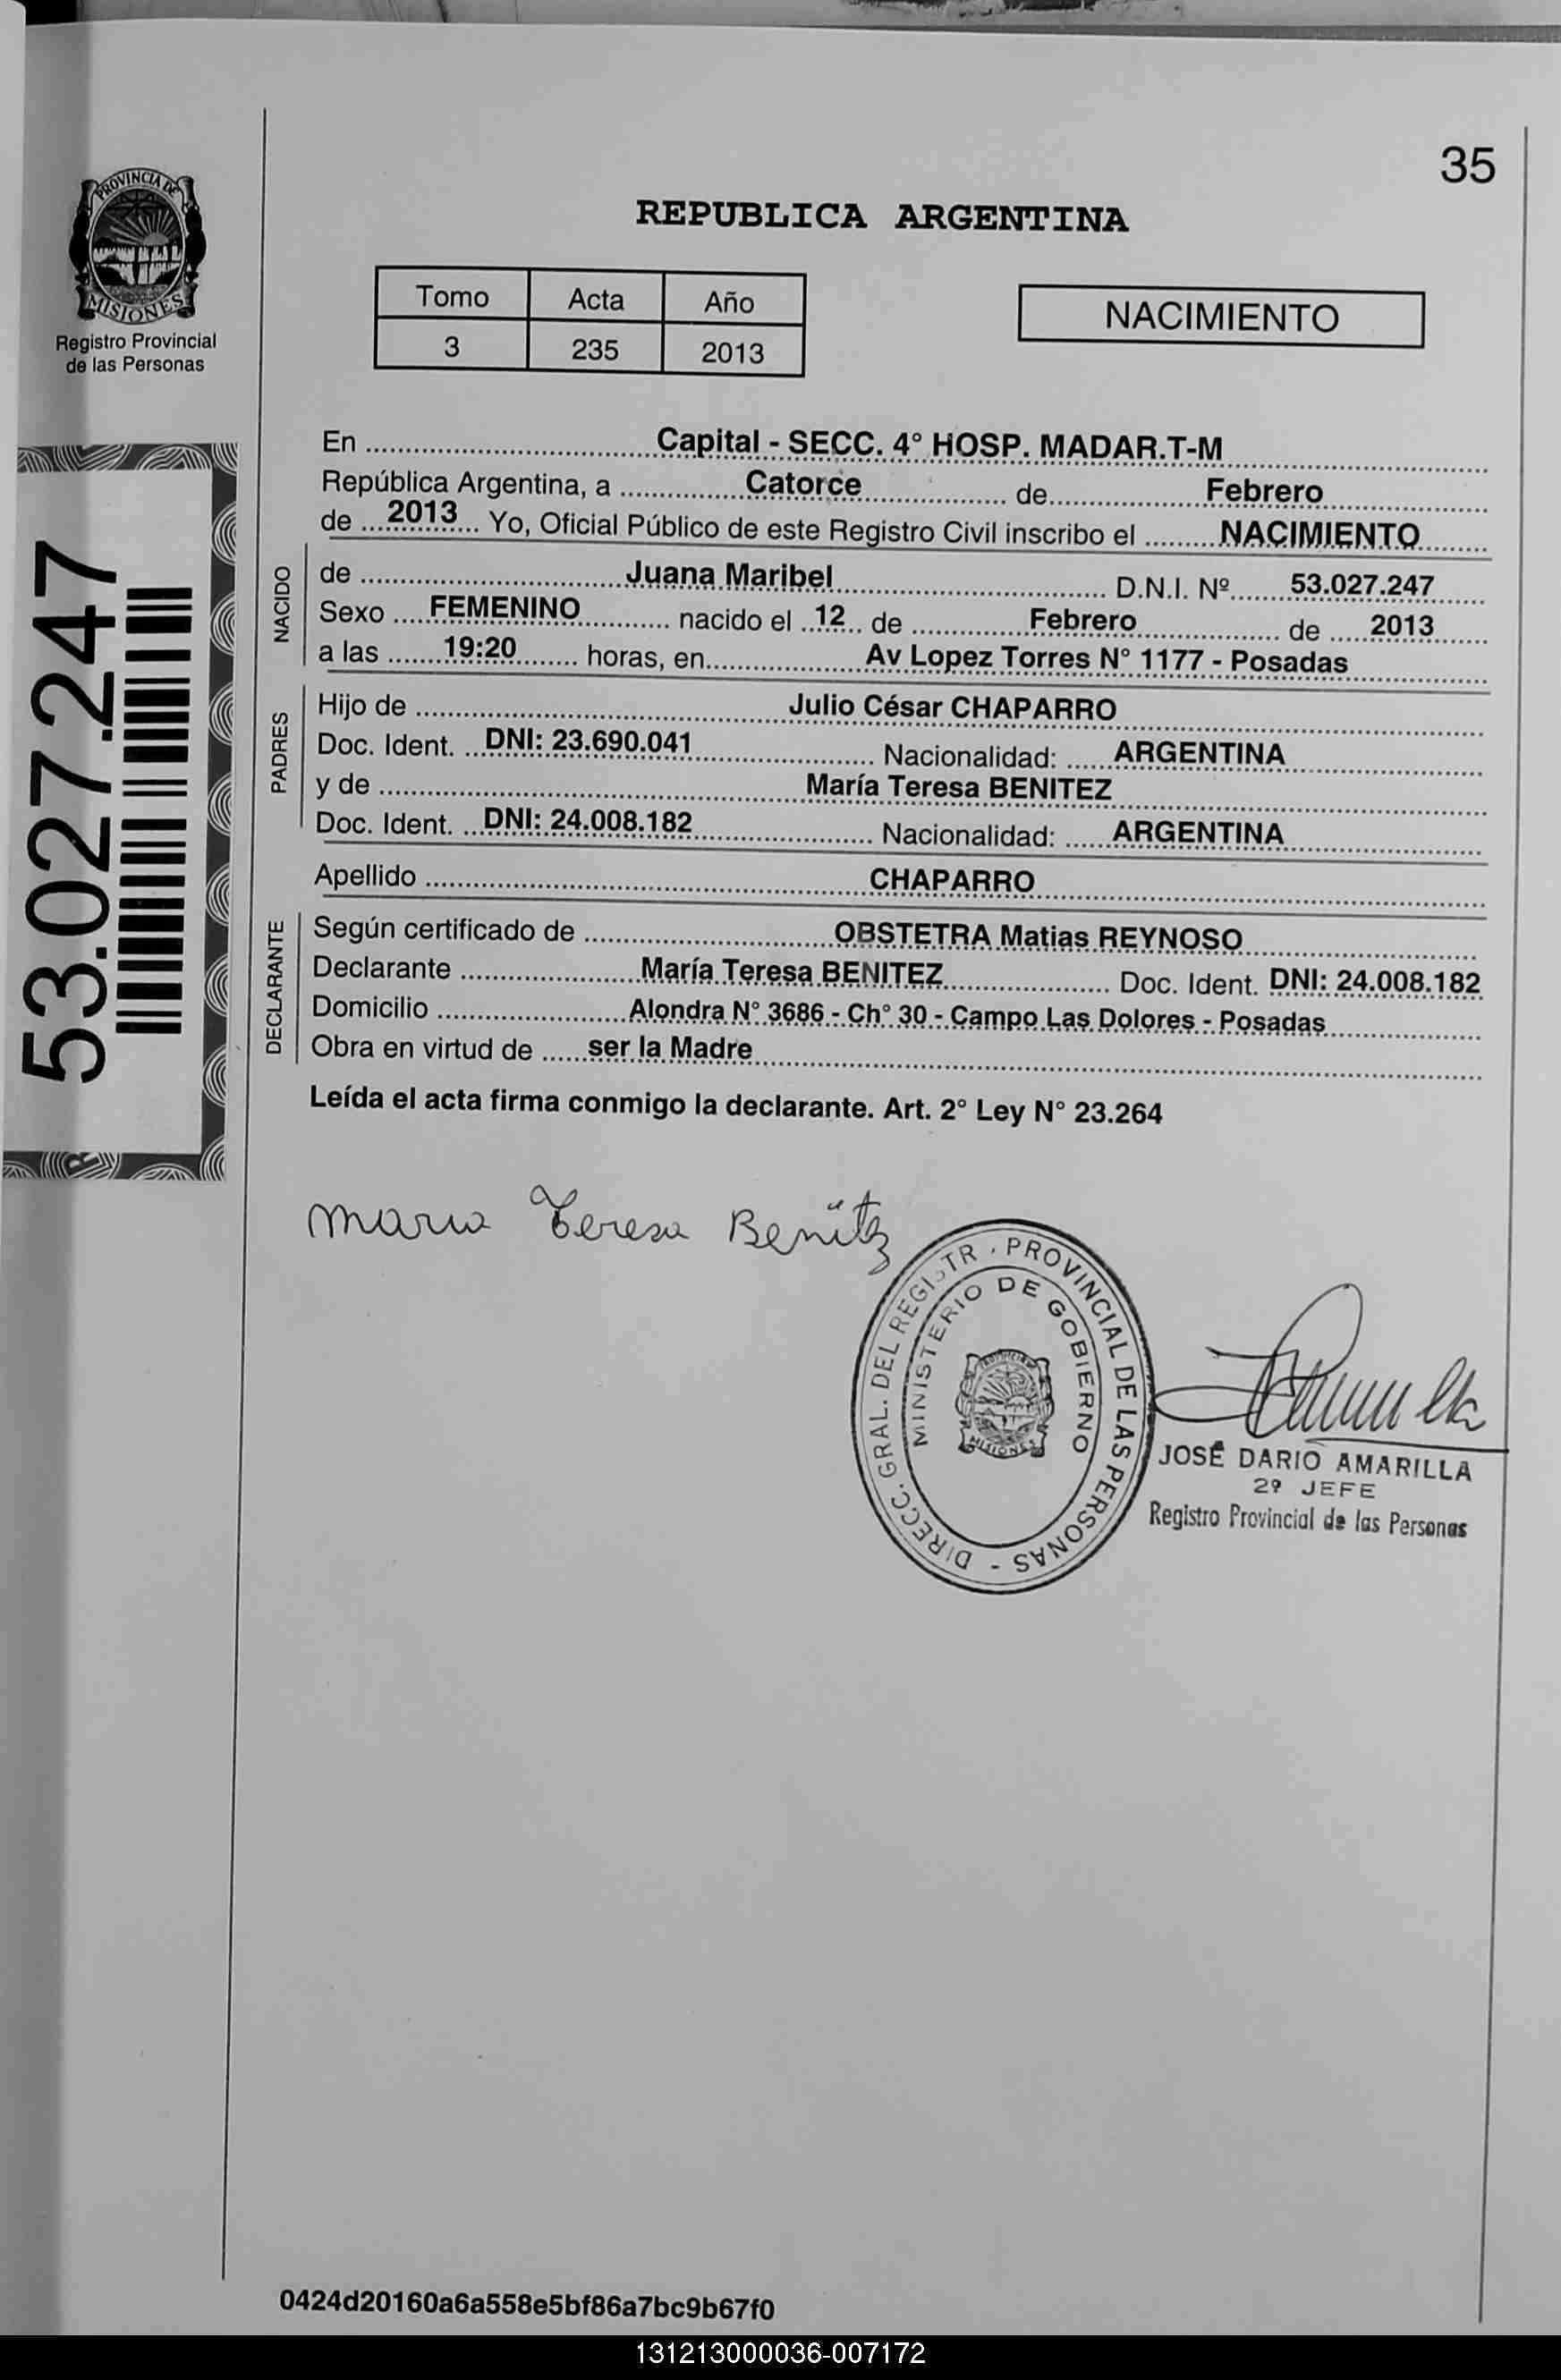 35
PROVINCIA DE
MISIONES
Registro Provincial
de las Personas
REPUBLICA ARGENTINA
Tomo Acta Año
3 235 2013
NACIMIENTO
53.027.247
En Capital - SECC. 4° HOSP. MADAR.T-M
República Argentina, a Catorce de Febrero
de 2013 Yo, Oficial Público de este Registro Civil inscribo el NACIMIENTO
NACIDO
de Juana Maribel D.N.I. Nº 53.027.247
Sexo FEMENINO nacido el 12 de Febrero de 2013
a las 19:20 horas, en Av Lopez Torres N° 1177 - Posadas
PADRES
Hijo de Julio César CHAPARRO
Doc. Ident. DNI: 23.690.041 Nacionalidad: ARGENTINA
y de María Teresa BENITEZ
Doc. Ident. DNI: 24.008.182 Nacionalidad: ARGENTINA
Apellido CHAPARRO
DECLARANTE
Según certificado de OBSTETRA Matias REYNOSO
Declarante María Teresa BENITEZ Doc. Ident. DNI: 24.008.182
Domicilio Alondra N° 3686 - Ch° 30 - Campo Las Dolores - Posadas
Obra en virtud de ser la Madre
Leída el acta firma conmigo la declarante. Art. 2° Ley N° 23.264
Maria Teresa Benitez
DIRECC. GRAL. DEL REGISTR. PROVINCIAL DE LAS PERSONAS -
MINISTERIO DE GOBIERNO
MISIONES
JOSÉ DARIO AMARILLA
2º JEFE
Registro Provincial de las Personas
0424d20160a6a558e5bf86a7bc9b67f0
131213000036-007172